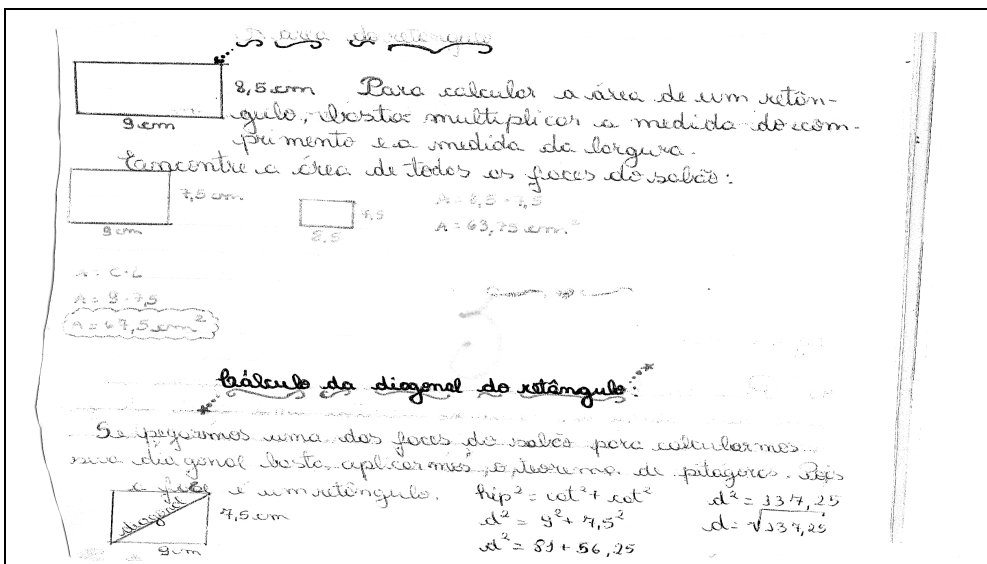 A área do retângulo
8,5 cm Para calcular a área de um retân-
9 cm gulo, basta multiplicar a medida do com-
primento e a medida da largura.
Encontre a área de todas as faces do sabão:
7,5 cm
9 cm
7,5
8,5
A = 8,5 · 7,5
A = 63,75 cm²
A = C·L
A = 9 · 7,5
A = 67,5 cm²
Cálculo da diagonal do retângulo:
Se pegarmos uma das faces do sabão para calcularmos
sua diagonal basta, aplicarmos, o teorema de pitágoras. Pois
a face é um retângulo.
diagonal
7,5 cm
9 cm
hip² = cat² + cat²
d² = 9² + 7,5²
d² = 81 + 56,25
d² = 137,25
d = √137,25